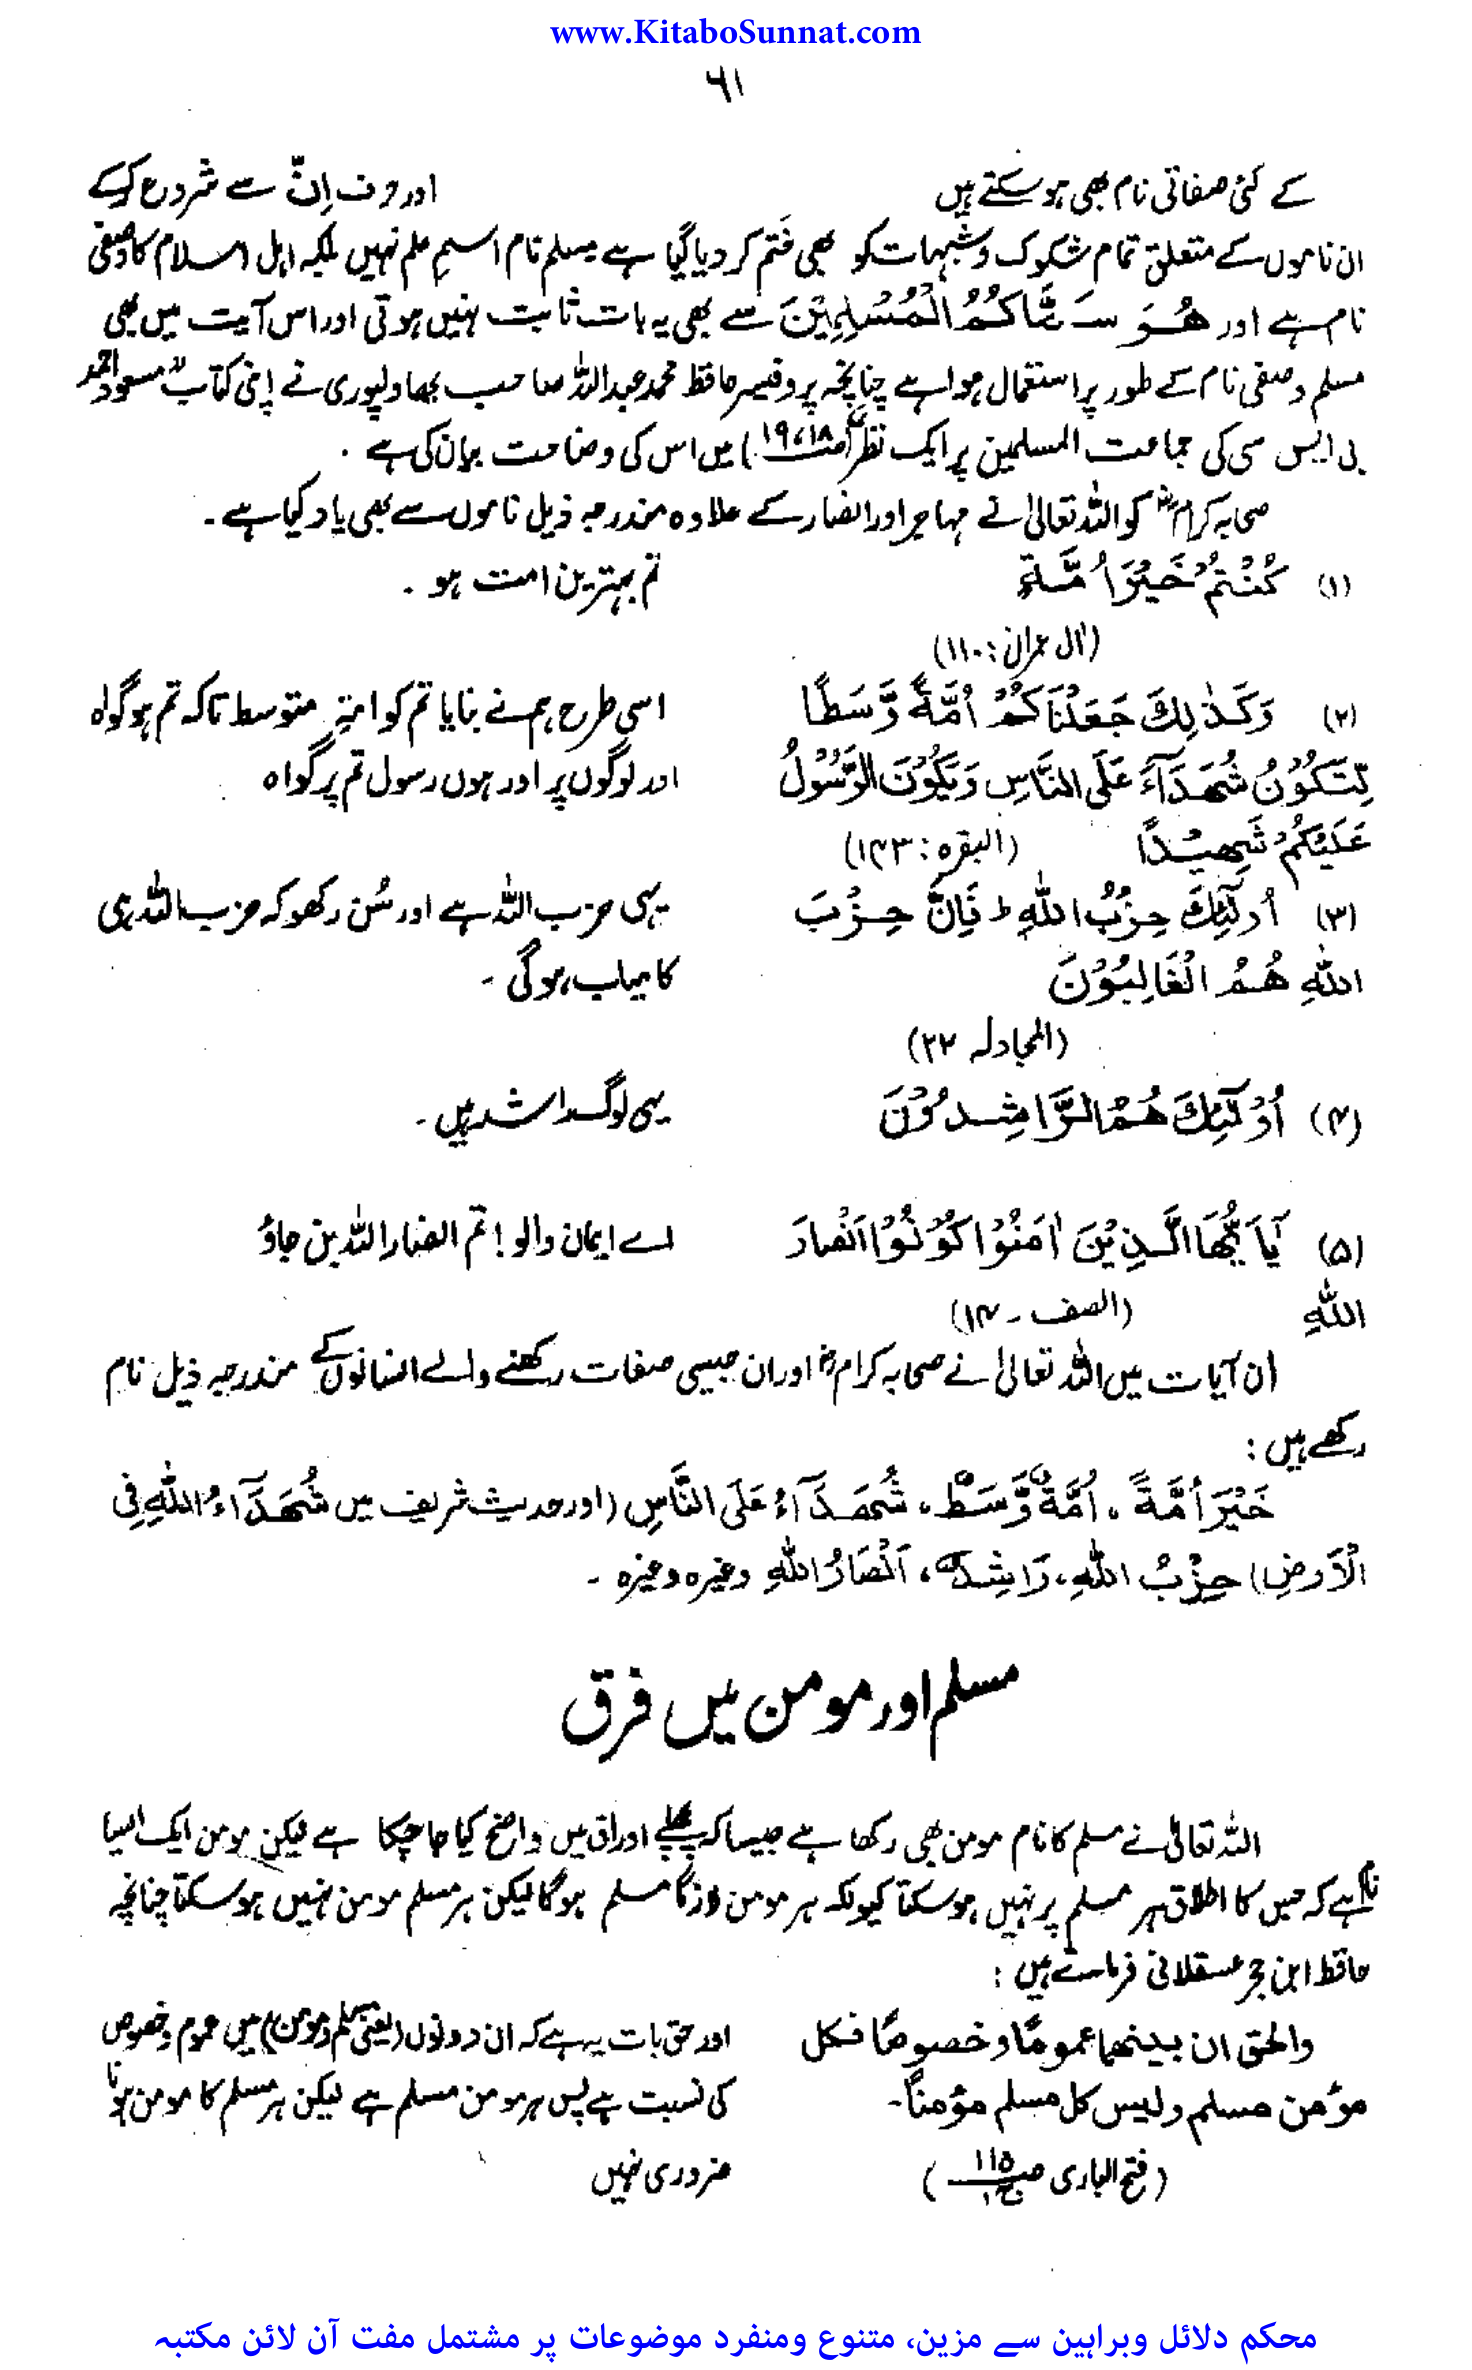 www.KitaboSunnat.com
٦١
کے کئی صفاتی نام بھی ہو سکتے ہیں اور حرف اِنَّ سے شروع کرکے
ان ناموں کے متعلق تمام شکوک و شبہات کو بھی ختم کر دیا گیا ہے مسلم نام اسمِ علم نہیں بلکہ اہل اسلام کا وصفی
نام ہے اور هُوَ سَمّٰاكُمُ الْمُسْلِمِيْنَ سے بھی یہ بات ثابت نہیں ہوتی اور اس آیت میں بھی
مسلم وصفی نام کے طور پر استعمال ہوا ہے چنانچہ پروفیسر حافظ محمد عبداللہ صاحب بھاولپوری نے اپنی کتاب "مسعود احمد
بی ایس سی کی جماعت المسلمین پر ایک نظر" (ص ۱۸، ۱۹) میں اس کی وضاحت بیان کی ہے ۔
صحابہ کرامؓ کو اللہ تعالیٰ نے مہاجر اور انصار کے علاوہ مندرجہ ذیل ناموں سے بھی یاد کیا ہے ۔
(۱) كُنْتُمْ خَيْرَ اُمَّةٍ تم بہترین امت ہو ۔
(اٰل عمران : ۱۱۰)
(۲) وَكَذٰلِكَ جَعَلْنَاكُمْ اُمَّةً وَّسَطًا اسی طرح ہم نے بنایا تم کو امتہِ متوسط تاکہ تم ہو گواہ
لِّتَكُوْنُ شُهَدَآءَ عَلَى النَّاسِ وَيَكُوْنَ الرَّسُوْلُ اور لوگوں پر اور ہوں رسول تم پر گواہ
عَلَيْكُمْ شَهِيْدًا (البقرہ : ۱۴۳)
(۳) اُولٰٓئِكَ حِزْبُ اللّٰهِ ط فَاِنَّ حِزْبَ یہی حزب اللہ ہے اور سُن رکھو کہ حزب اللہ ہی
اللّٰهِ هُمُ الْغَالِبُوْنَ کامیاب ہوگی ۔
(المجادلہ ۲۲)
(۴) اُوْلٰٓئِكَ هُمُ الرَّاشِدُوْنَ یہی لوگ راشد ہیں ۔
(۵) يٰٓاَيُّهَا الَّذِيْنَ اٰمَنُوْا كُوْنُوْا اَنْصَارَ اے ایمان والو ! تم انصار اللہ بن جاؤ
اللّٰهِ (الصف ۔ ۱۴)
ان آیات میں اللہ تعالیٰ نے صحابہ کرامؓ اور ان جیسی صفات رکھنے والے انسانوں کے مندرجہ ذیل نام
رکھے ہیں :
خَيْرَ اُمَّةً ، اُمَّةً وَّسَطْ ، شُهَدَآءُ عَلَى النَّاسِ (اور حدیث شریف میں شُهَدَآءُ اللّٰهِ فِى
الْاَرضِ) حِزْبُ اللّٰهِ ، رَاشِدْ ، اَنْصَارُ اللّٰهِ وغیرہ وغیرہ ۔
مسلم اور مومن میں فرق
اللہ تعالیٰ نے مسلم کا نام مومن بھی رکھا ہے جیسا کہ پچھلے اوراق میں واضح کیا جا چکا ہے لیکن مومن ایک ایسا
نام ہے کہ جس کا اطلاق ہر مسلم پر نہیں ہو سکتا کیونکہ ہر مومن لازماً مسلم ہوگا لیکن ہر مسلم مومن نہیں ہو سکتا چنانچہ
حافظ ابن حجر عسقلانی فرماتے ہیں :
والحق ان بينهما عمومًا و خصوصًا فكل اور حق بات یہ ہے کہ ان دونوں (یعنی مسلم و مومن) میں عموم و خصوص
مؤمن مسلم وليس كل مسلم مؤمناً ۔ کی نسبت ہے پس ہر مومن مسلم ہے لیکن ہر مسلم کا مومن ہونا
(فتح الباری ص ۱۱۵ ج ۱) ضروری نہیں
محکم دلائل وبراہین سے مزین، متنوع ومنفرد موضوعات پر مشتمل مفت آن لائن مکتبہ